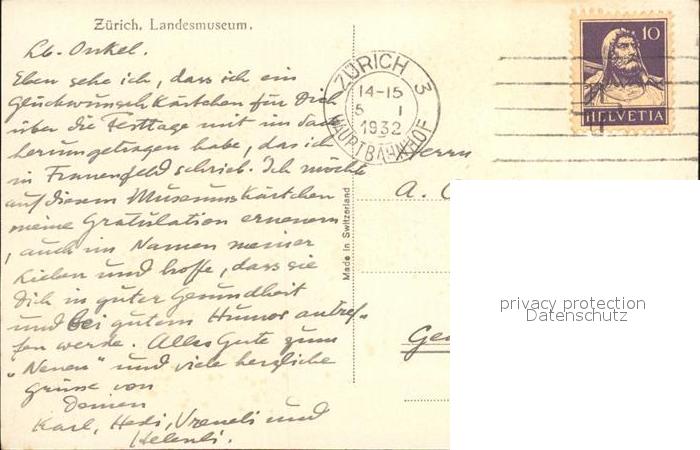 Zürich, Landesmuseum.
Lb. Onkel.
Eben sehe ich, dass ich ein
Glückwunschkärtchen für Dich
über die Festtage mit im Sack
herumgetragen habe, das ich
in Frauenfeld schrieb. Ich möchte
auf diesem Museumskärtchen
meine Gratulation erneuern
, auch im Namen meiner
Lieben und hoffe, dass sie
Dich in guter Gesundheit
und bei gutem Humor antref-
fen werde. Alles Gute zum
"Neuen" und viele herzliche
Grüsse von
Deinen
Karl, Hedi, Vreneli und
Helenli.
Made in Switzerland
ZÜRICH 3
14-15
5 I
1932
HAUPTBAHNHOF
10
HELVETIA
Herrn
A.
privacy protection
Datenschutz